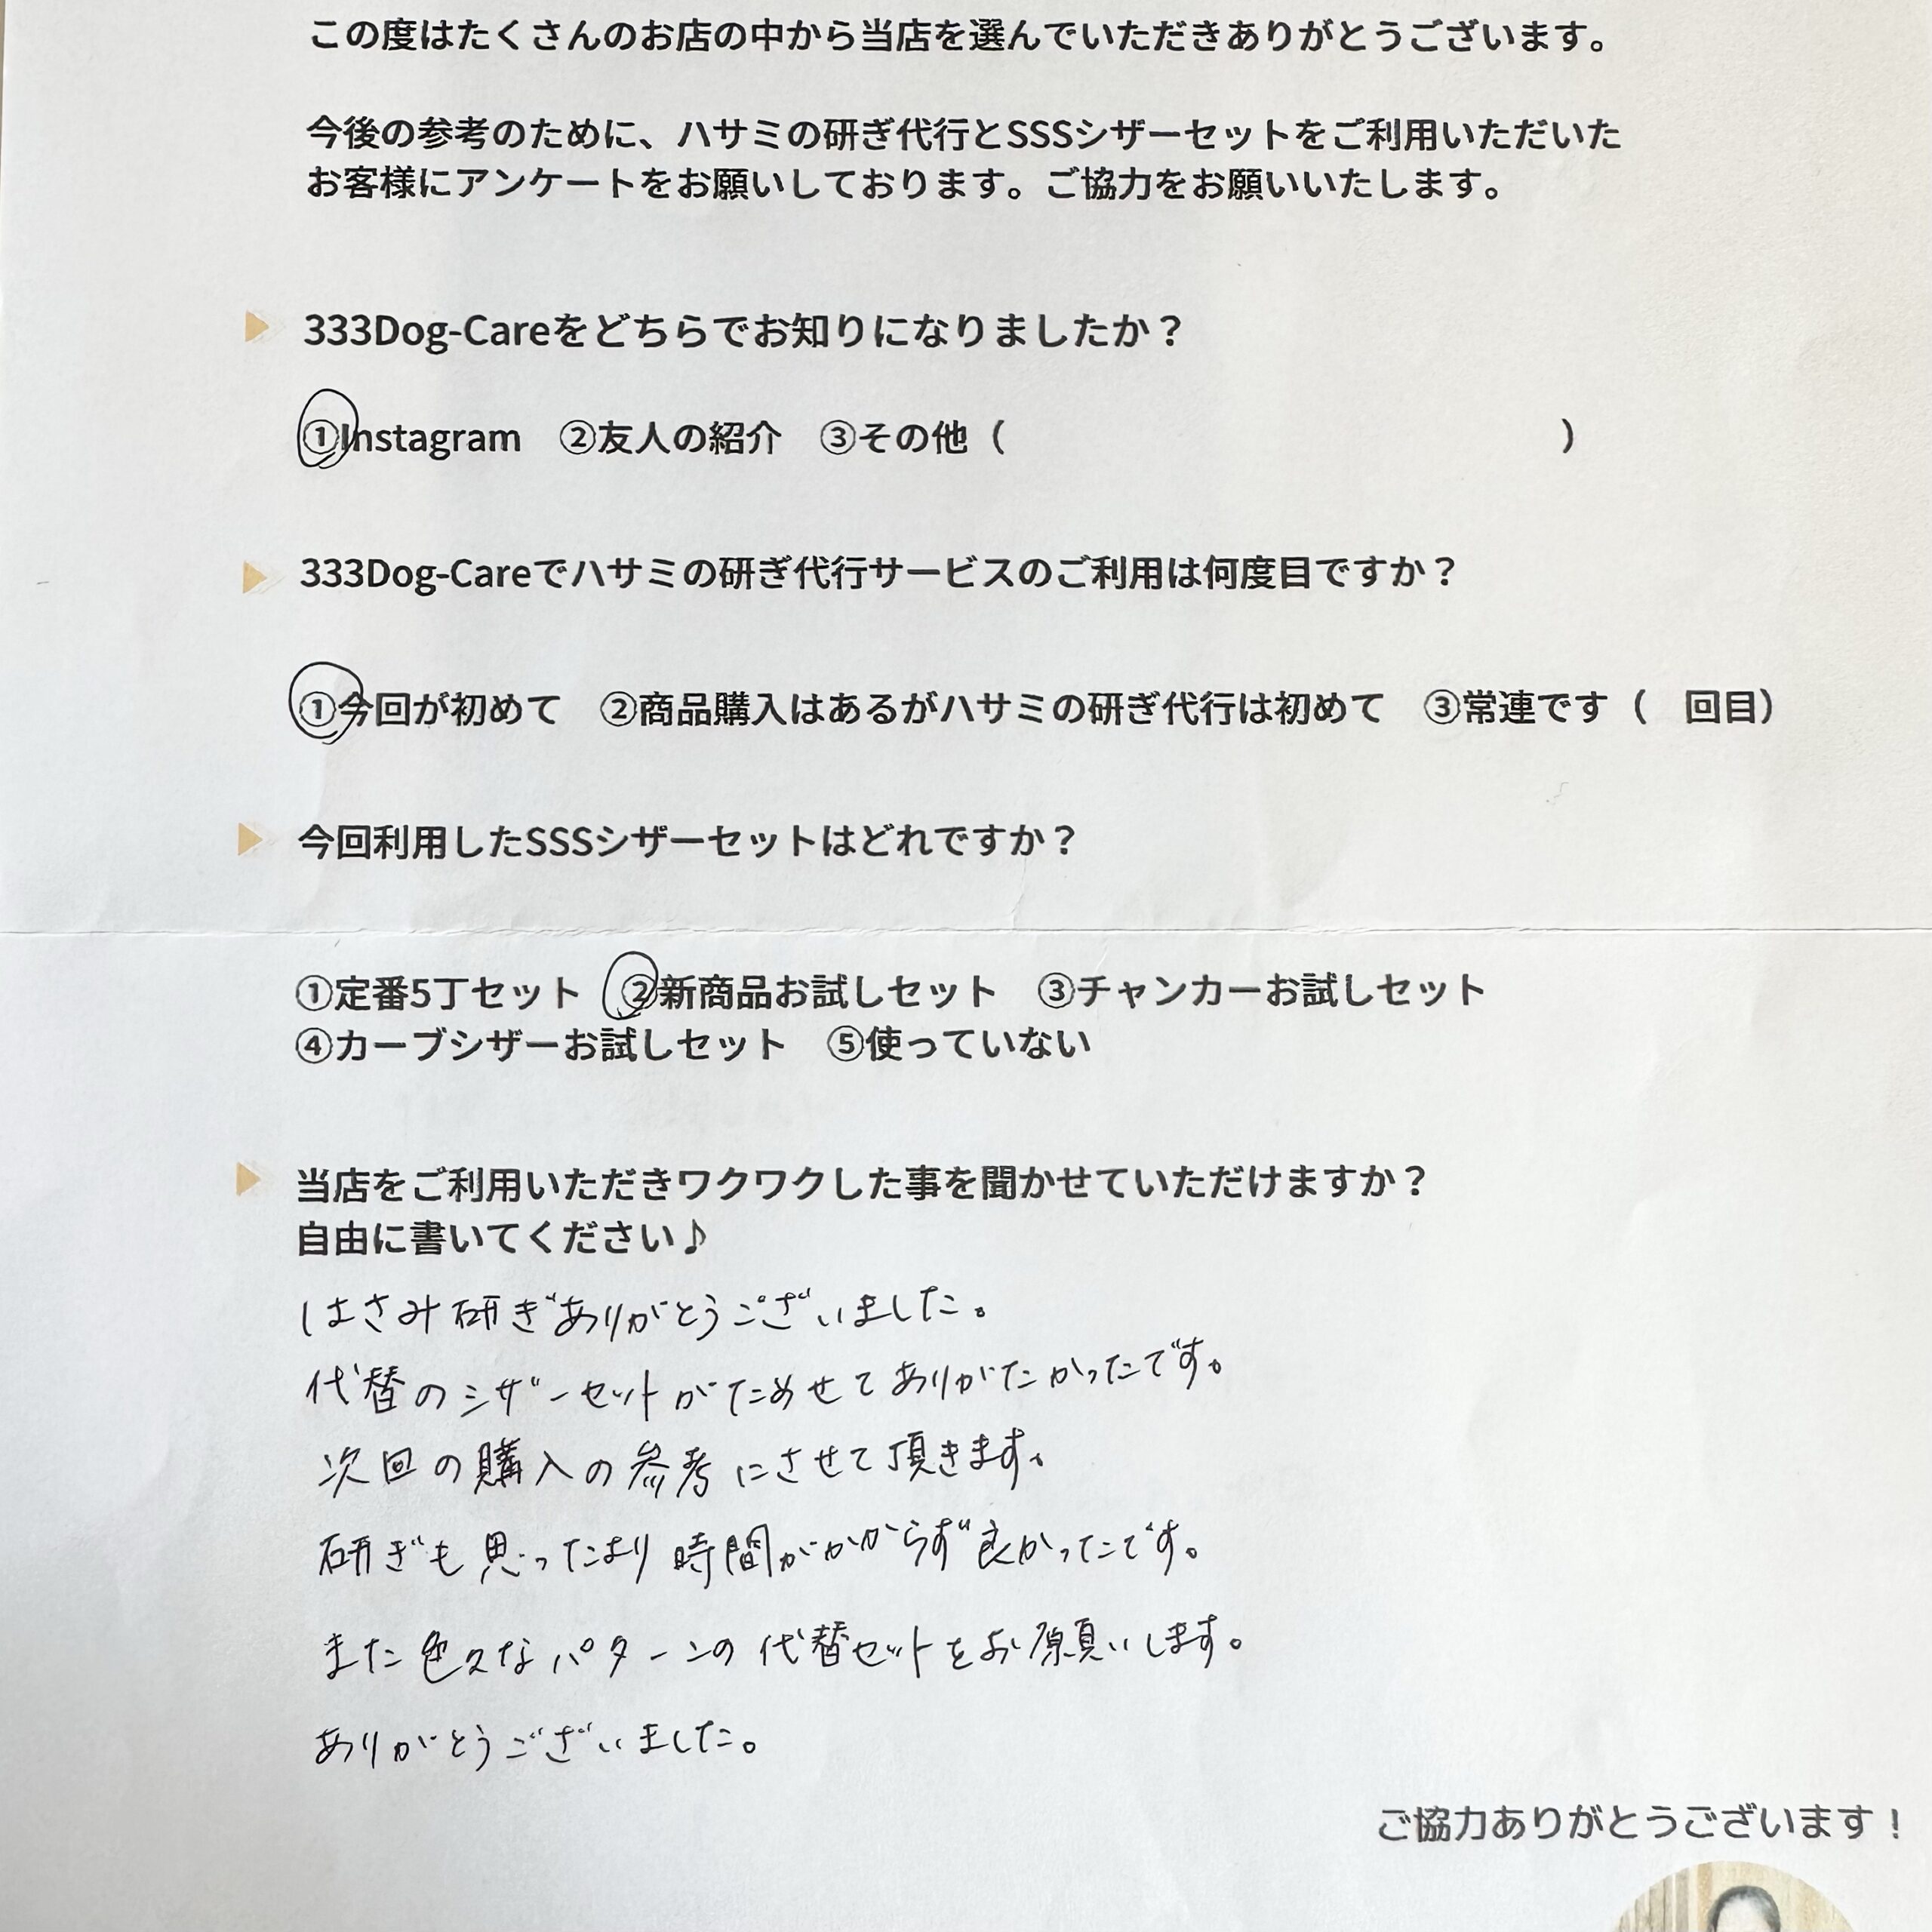 この度はたくさんのお店の中から当店を選んでいただきありがとうございます。
今後の参考のために、ハサミの研ぎ代行とSSSシザーセットをご利用いただいた
お客様にアンケートをお願いしております。ご協力をお願いいたします。
333Dog-Careをどちらでお知りになりましたか？
①Instagram　②友人の紹介　③その他（　　　　　　　　　　　　　　）
333Dog-Careでハサミの研ぎ代行サービスのご利用は何度目ですか？
①今回が初めて　②商品購入はあるがハサミの研ぎ代行は初めて　③常連です（　回目）
今回利用したSSSシザーセットはどれですか？
①定番5丁セット　②新商品お試しセット　③チャンカーお試しセット
④カーブシザーお試しセット　⑤使っていない
当店をご利用いただきワクワクした事を聞かせていただけますか？
自由に書いてください♪
はさみ研ぎありがとうございました。
代替のシザーセットがためせてありがたかったです。
次回の購入の参考にさせて頂きます。
研ぎも思ったより時間がかからず良かったです。
また色々なパターンの代替セットをお願いします。
ありがとうございました。
ご協力ありがとうございます！